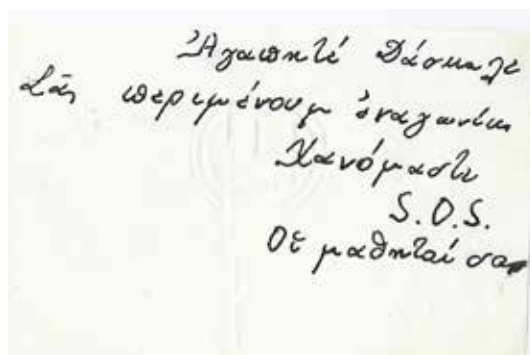 Ἀγαπητέ Δάσκαλε
Σᾶς περιμένουμ ἐναγωνίως
Χανόμαστε
S.O.S.
Οἱ μαθηταί σας